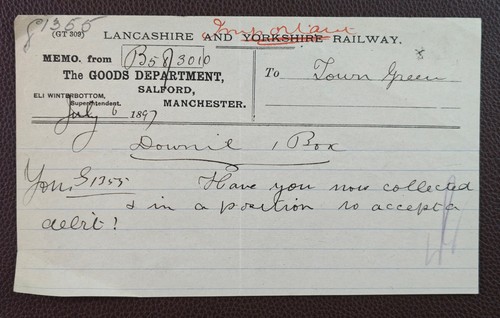 81355
Important
(GT 309) LANCASHIRE AND YORKSHIRE RAILWAY.
MEMO. from B58/3010
The GOODS DEPARTMENT,
SALFORD,
MANCHESTER.
ELI WINTERBOTTOM,
Superintendent.
To Town Green
July 6 1897
1 Box
Your G1355 Have you now collected
& in a position to accept a
debit?